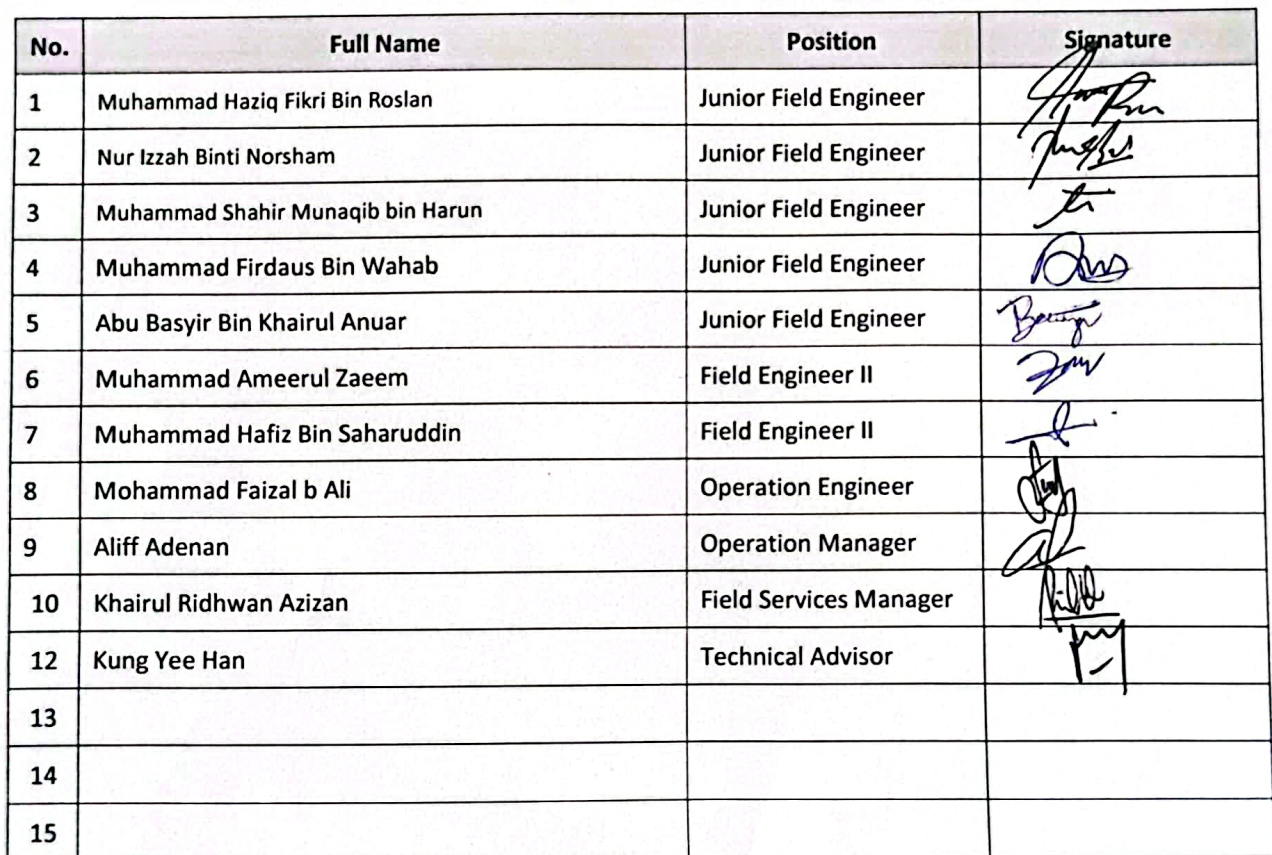 No. Full Name Position Signature
1 Muhammad Haziq Fikri Bin Roslan Junior Field Engineer
2 Nur Izzah Binti Norsham Junior Field Engineer
3 Muhammad Shahir Munaqib bin Harun Junior Field Engineer
4 Muhammad Firdaus Bin Wahab Junior Field Engineer
5 Abu Basyir Bin Khairul Anuar Junior Field Engineer
6 Muhammad Ameerul Zaeem Field Engineer II
7 Muhammad Hafiz Bin Saharuddin Field Engineer II
8 Mohammad Faizal b Ali Operation Engineer
9 Aliff Adenan Operation Manager
10 Khairul Ridhwan Azizan Field Services Manager
12 Kung Yee Han Technical Advisor
13
14
15